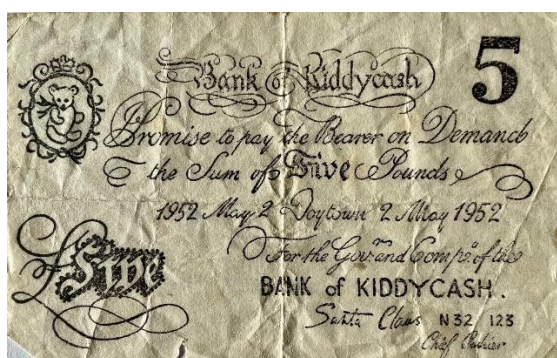 Bank of Kiddycash 5
Promise to pay the Bearer on Demand
the Sum of Five Pounds
1952 May 2 Toytown 2 May 1952
For the Gov.rs and Comp.a of the
£Five
BANK of KIDDYCASH.
Santa Claus N32 123
Chief Cashier